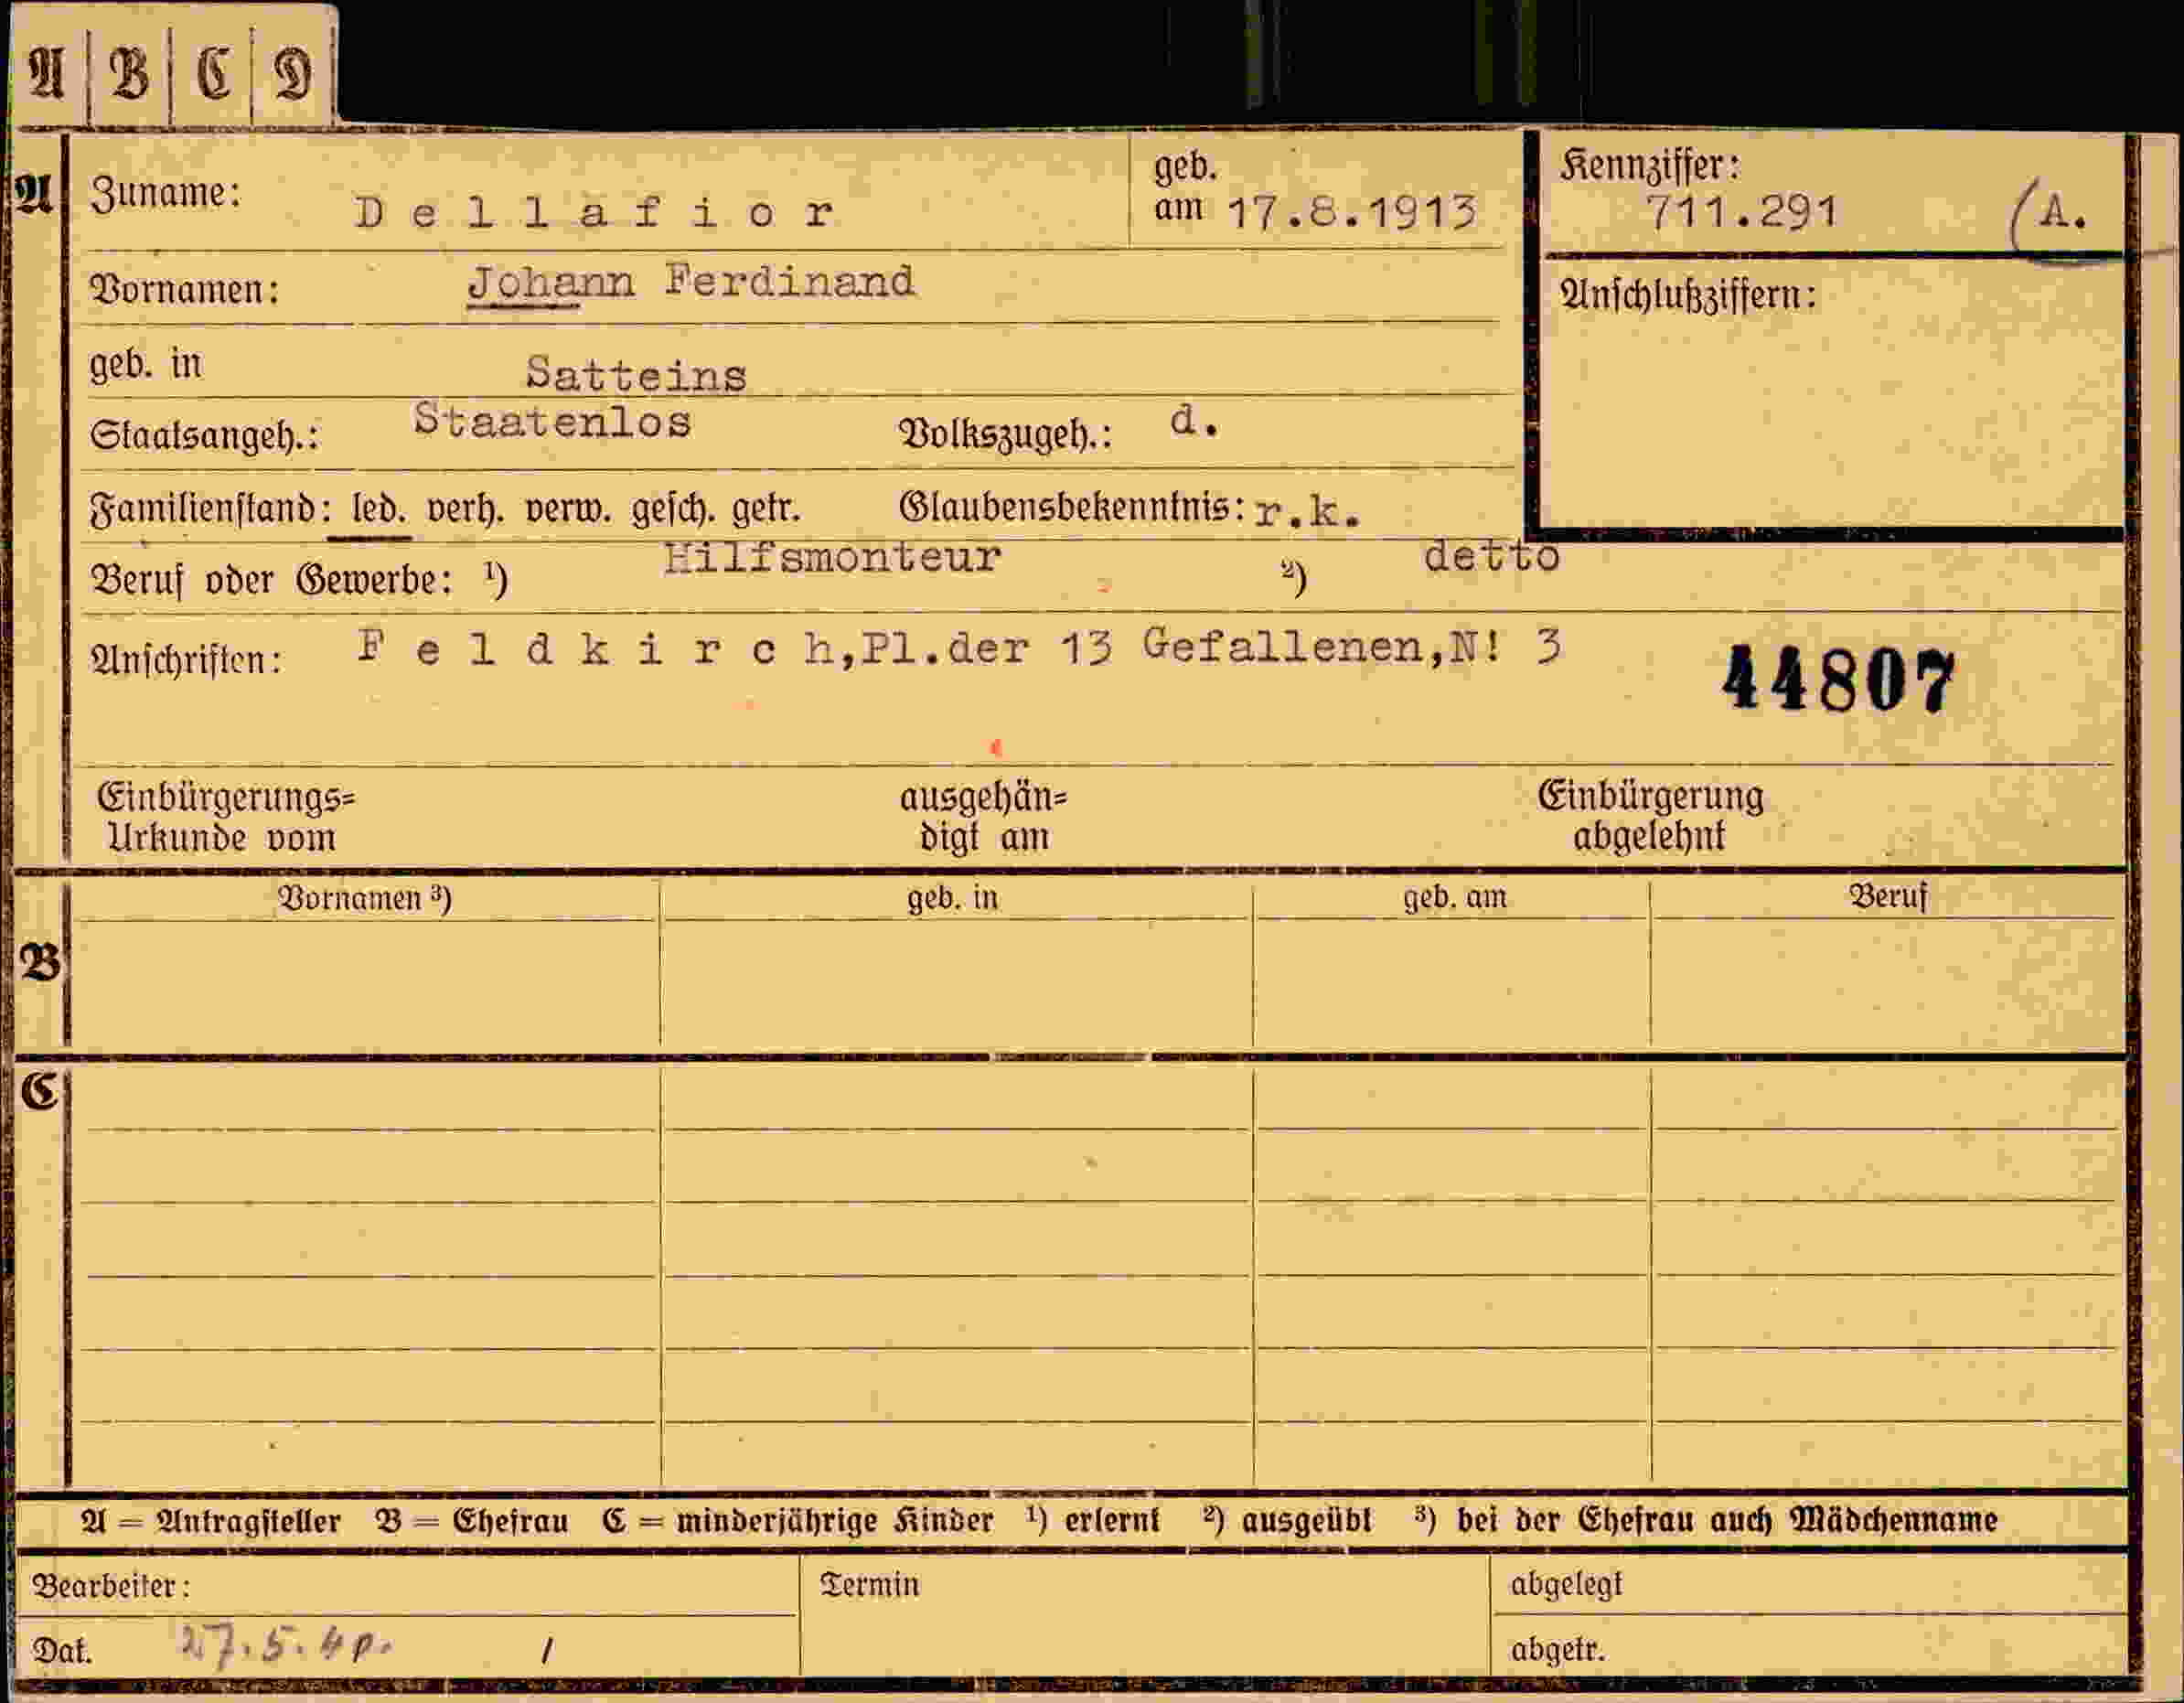 A B C D
A Zuname: Dellafior geb. am 17.8.1913 Kennziffer: 711.291 (A.
Vornamen: Johann Ferdinand Anschlußziffern:
geb. in Satteins
Staatsangeh.: Staatenlos Volkszugeh.: d.
Familienstand: led. verh. verw. gesch. getr. Glaubensbekenntnis: r.k.
Beruf oder Gewerbe: ¹) Hilfsmonteur ²) detto
Anschriften: Feldkirch,Pl.der 13 Gefallenen,N! 3
44807
Einbürgerungs= ausgehän= Einbürgerung
Urkunde vom digt am abgelehnt
Vornamen ³) geb. in geb. am Beruf
B
C
A = Antragsteller B = Ehefrau C = minderjährige Kinder ¹) erlernt ²) ausgeübt ³) bei der Ehefrau auch Mädchenname
Bearbeiter: Termin abgelegt
Dat. 27.5.40. / abgetr.